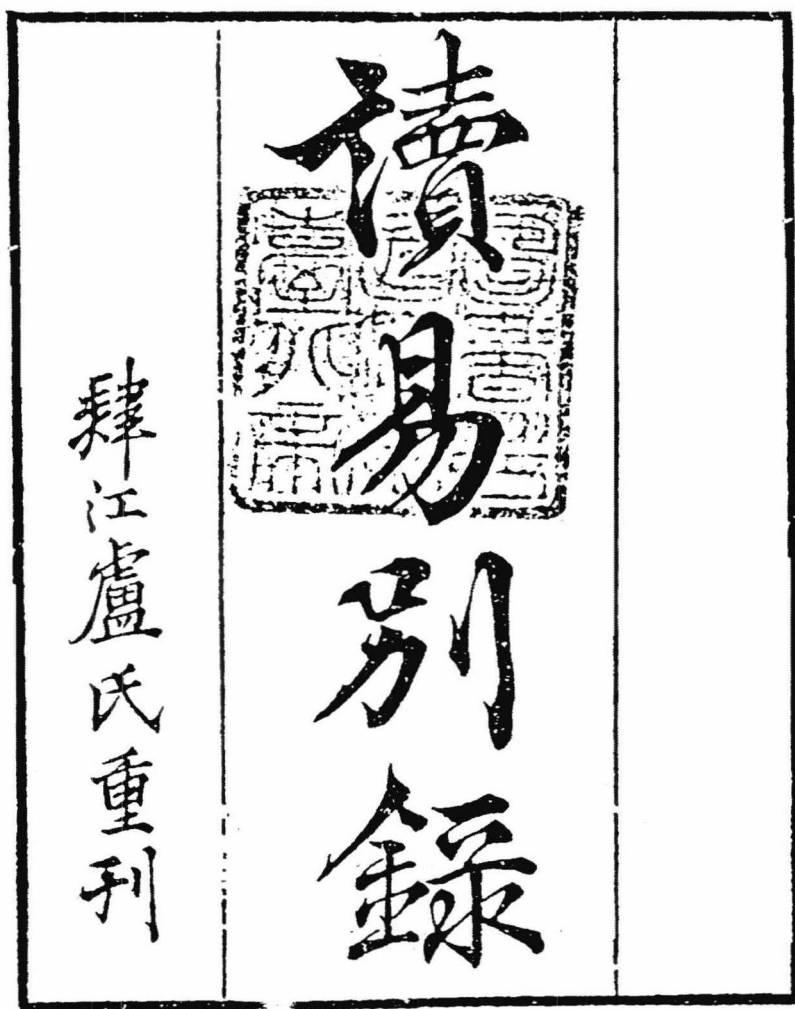 讀易別錄
肄江盧氏重刊